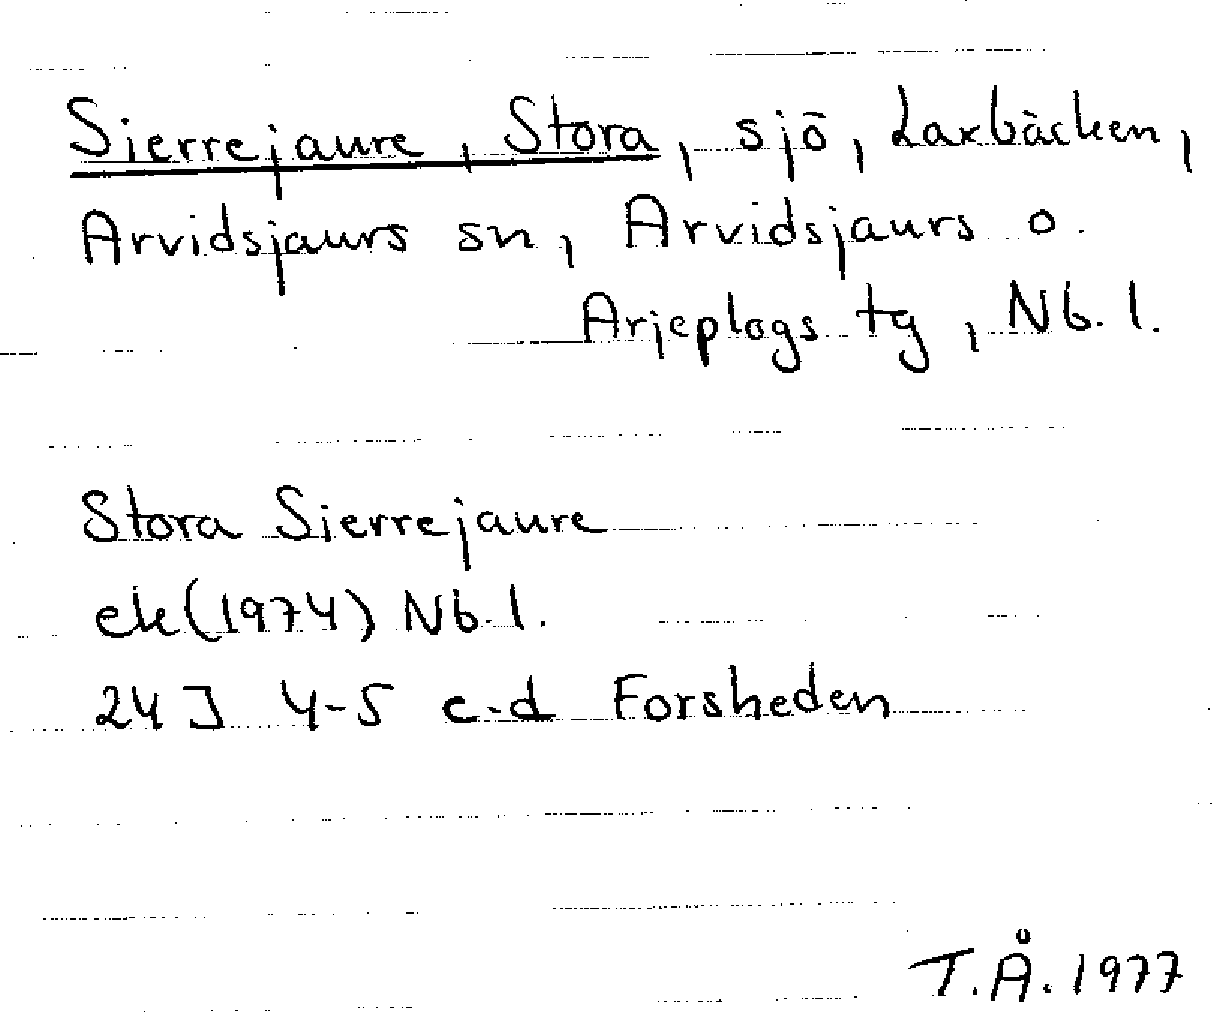 Sierrejaure, Stora, sjö, Laxbäcken,
Arvidsjaurs sn, Arvidsjaurs o.
Arjeplogs tg, Nb. l.
Stora Sierrejaure
ek (1974) Nb. l.
24 J 4-5 c-d Forsheden
T.Å. 1977